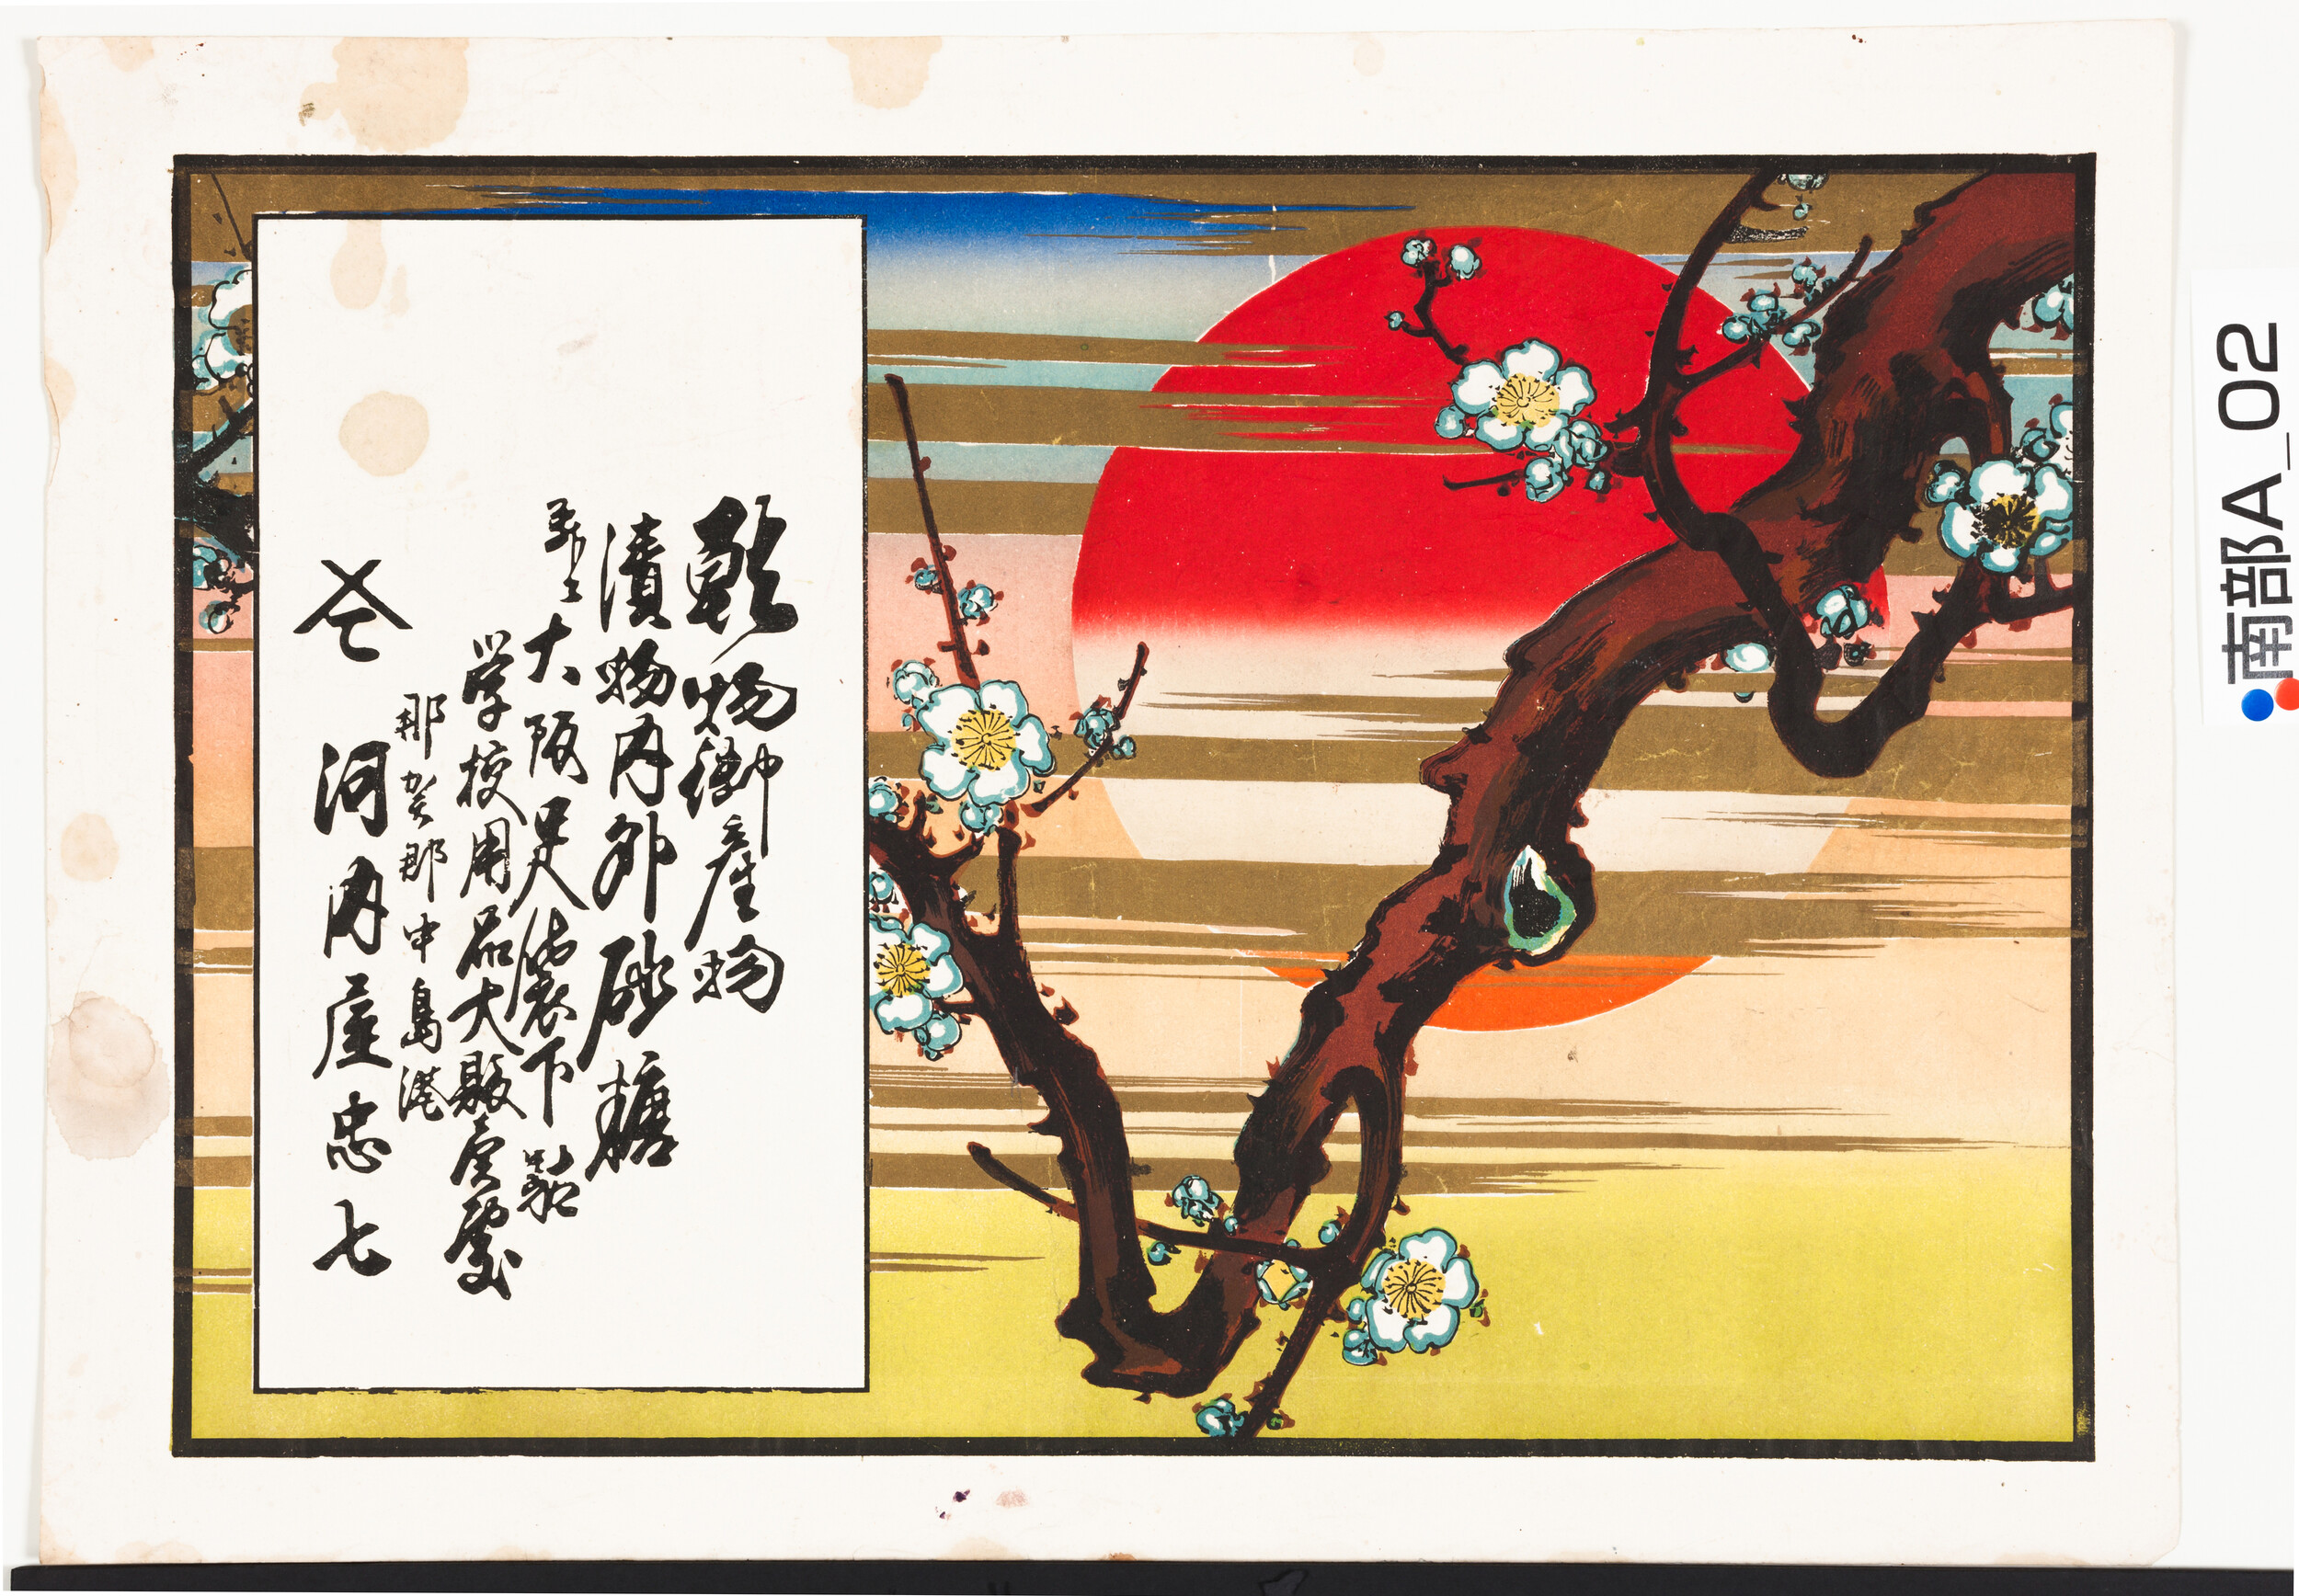 乾物御産物
漬物内外砂糖
并ニ大阪足袋下駄
学校用品大販賣處
那賀郡中島港
河内屋忠七
南部A_02